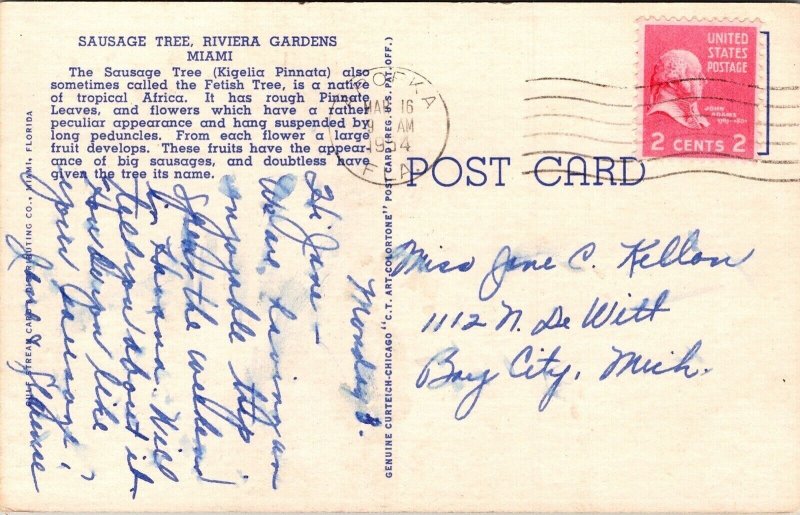 SAUSAGE TREE, RIVIERA GARDENS
MIAMI
The Sausage Tree (Kigelia Pinnata) also
sometimes called the Fetish Tree, is a native
of tropical Africa. It has rough Pinnate
Leaves, and flowers which have a rather
peculiar appearance and hang suspended by
long peduncles. From each flower a large
fruit develops. These fruits have the appear-
ance of big sausages, and doubtless have
given the tree its name.
GULF STREAM CARD & DISTRIBUTING CO., MIAMI, FLORIDA
Monday
Hi Jane –
We are having an
enjoyable trip
Spent the weekend
in Havana. Will
tell you about it.
How do you like
your sausage?
GENUINE CURTEICH-CHICAGO "C.T. ART-COLORTONE" POST CARD (REG. U.S. PAT. OFF.)
POST CARD
APOPKA
MAR 16
9 AM
FLA.
UNITED
STATES
POSTAGE
JOHN
ADAMS
2 CENTS 2
Miss Jane C. Kellon
1112 N. De Witt
Bay City, Mich.